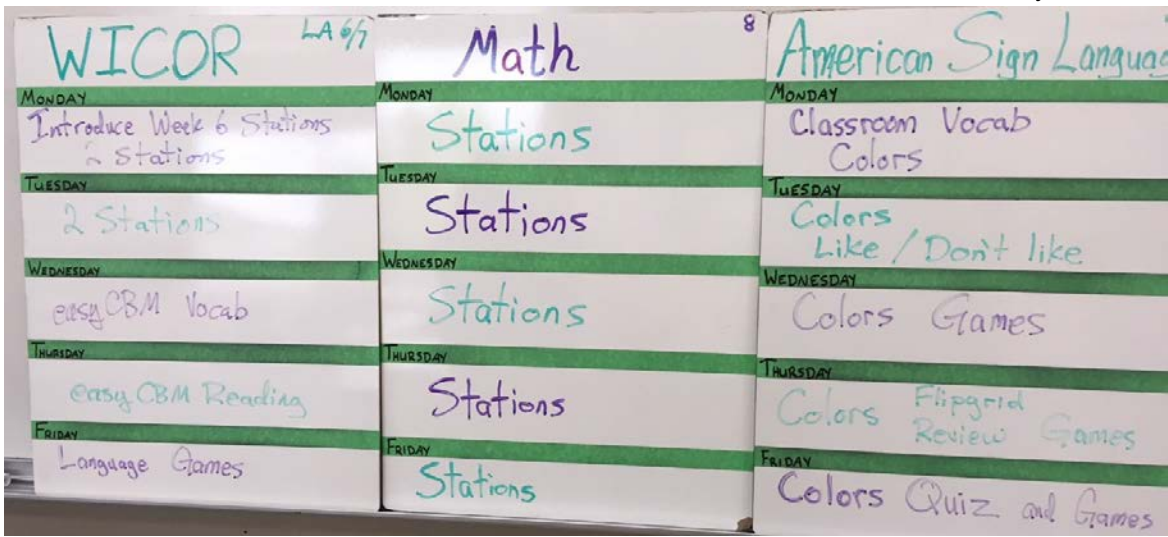 WICOR LA 6/7
MONDAY
Introduce Week 6 Stations
2 Stations
TUESDAY
2 Stations
WEDNESDAY
easyCBM Vocab
THURSDAY
easyCBM Reading
FRIDAY
Language Games
Math 8
MONDAY
Stations
TUESDAY
Stations
WEDNESDAY
Stations
THURSDAY
Stations
FRIDAY
Stations
American Sign Languag
MONDAY
Classroom Vocab
Colors
TUESDAY
Colors
Like / Don't like
WEDNESDAY
Colors Games
THURSDAY
Colors Flipgrid
Review Games
FRIDAY
Colors Quiz and Games